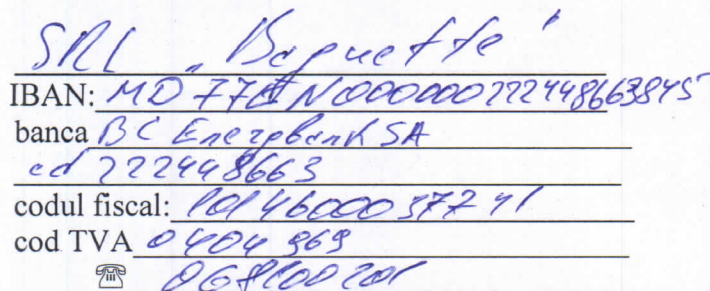 SRL „Baguette"
IBAN: MD 77EN000000222448663845
banca BC Energbank SA
cd 222448663
codul fiscal: 1014600037741
cod TVA 0404969
☎ 068100201